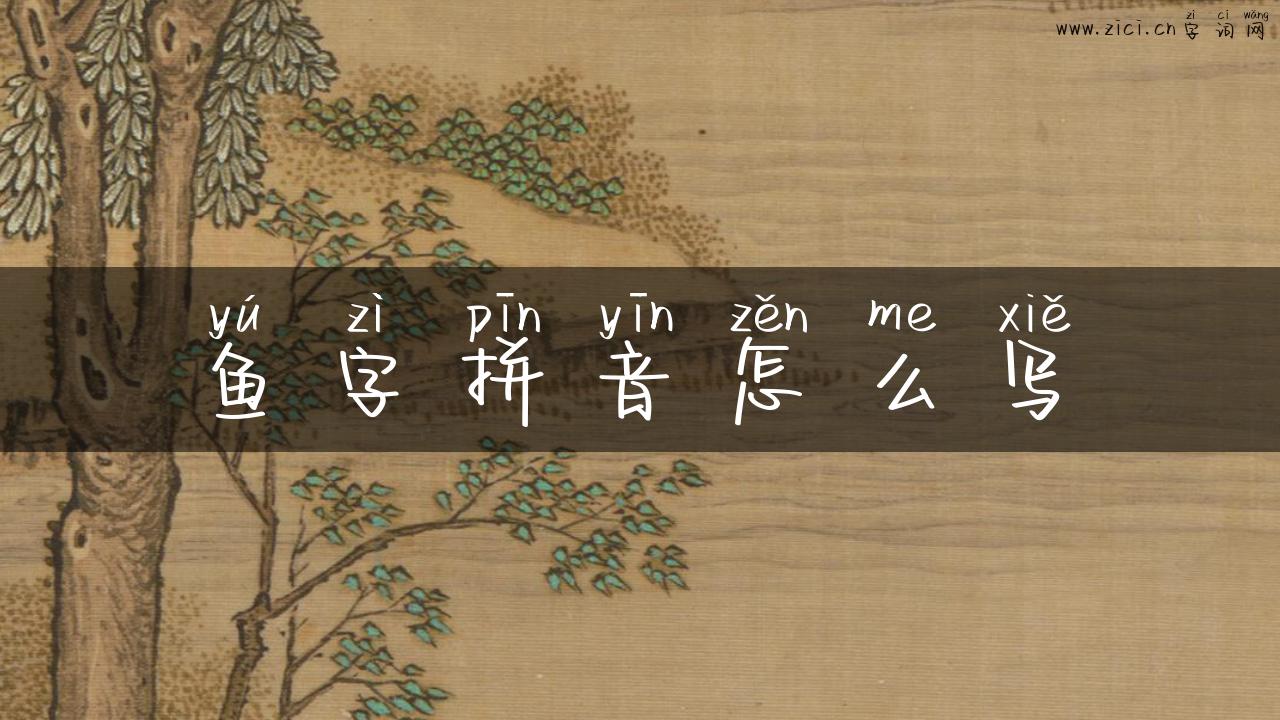 zì cí wǎng
www.zici.cn 字词网
yú zì pīn yīn zěn me xiě
鱼字拼音怎么写